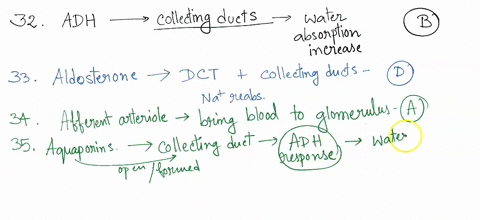 32. ADH → collecting ducts → water absorption increase (B)
33. Aldosterone → DCT + collecting ducts - (D)
Na+ reabs.
34. Afferent arteriole → bring blood to glomerulus - (A)
35. Aquaporins → collecting duct → ADH response → water
open/formed